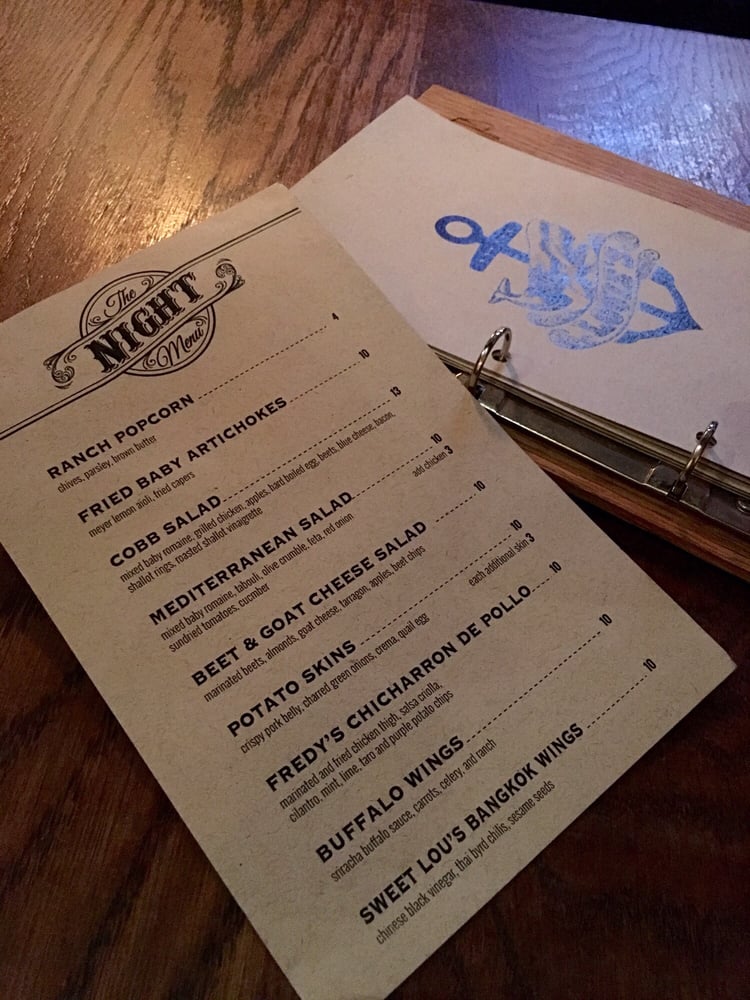 The
NIGHT
Menu
RANCH POPCORN 4
chives, parsley, brown butter
FRIED BABY ARTICHOKES 10
meyer lemon aioli, fried capers
COBB SALAD 13
mixed baby romaine, grilled chicken, apples, hard boiled egg, beets, blue cheese, bacon,
shallot rings, roasted shallot vinaigrette
MEDITERRANEAN SALAD 10
mixed baby romaine, tabouli, olive crumble, feta, red onion add chicken 3
sundried tomatoes, cucmber
BEET & GOAT CHEESE SALAD 10
marinated beets, almonds, goat cheese, tarragon, apples, beet chips
POTATO SKINS 10
crispy pork belly, charred green onions, crema, quail egg each additional skin 3
FREDY'S CHICHARRON DE POLLO 10
marinated and fried chicken thigh, salsa criolla,
cilantro, mint, lime, taro and purple potato chips
BUFFALO WINGS 10
sriracha buffalo sauce, carrots, celery, and ranch
SWEET LOU'S BANGKOK WINGS 10
chinese black vinegar, thai byrd chilis, sesame seeds